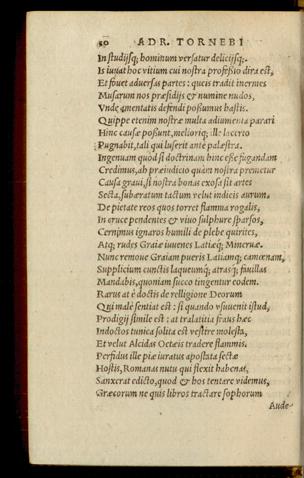 50 ADR. TORNEBI
In studijsq; hominum versatur delicijsq;.
Is iuuat hoc vitium cui nostra professio dira est,
Et fouet aduersas partes: queis tradit inermes
Musarum nos præsidijs & numine nudos,
Vnde armentatis defendi possumus hastis.
Quippe etenim nostræ multa adiumenta parari
Hinc causæ possunt, melioriq; ille lacerto
Pugnabit, tali qui luserit ante palæstra.
Ingenuam quod si doctrinam hinc esse fugandam
Credimus, ah præiudicio quàm nostra premetur
Causa graui, si nostra bonas exosa sit artes
Secta, subæratum tactum velut indicis aurum.
De pietate reos quos torret flamma rogalis,
In cruce pendentes & viuo sulphure sparsos,
Cernimus ignaros humili de plebe quirites,
Atq; rudes Graiæ iuuenes Latiæq; Mineruæ.
Nunc remoue Graiam pueris Latiamq; camœnam,
Supplicium cunctis laqueumq; atras q; fauillas
Mandabis, quoniam succo tingentur eodem.
Rarus at è doctis de relligione Deorum
Qui malè sentiat est: si quando vsuuenit istud,
Prodigij simile est: at tralatitia fraus hæc
Indoctos tunica solita est vestire molesta,
Et velut Alcidas Oetæis tradere flammis.
Perfidus ille piæ iuratus apostata sectæ
Hostis, Romanas nutu qui flexit habenas,
Sanxerat edicto, quod & hos tentare videmus,
Græcorum ne quis libros tractare sophorum
Aude